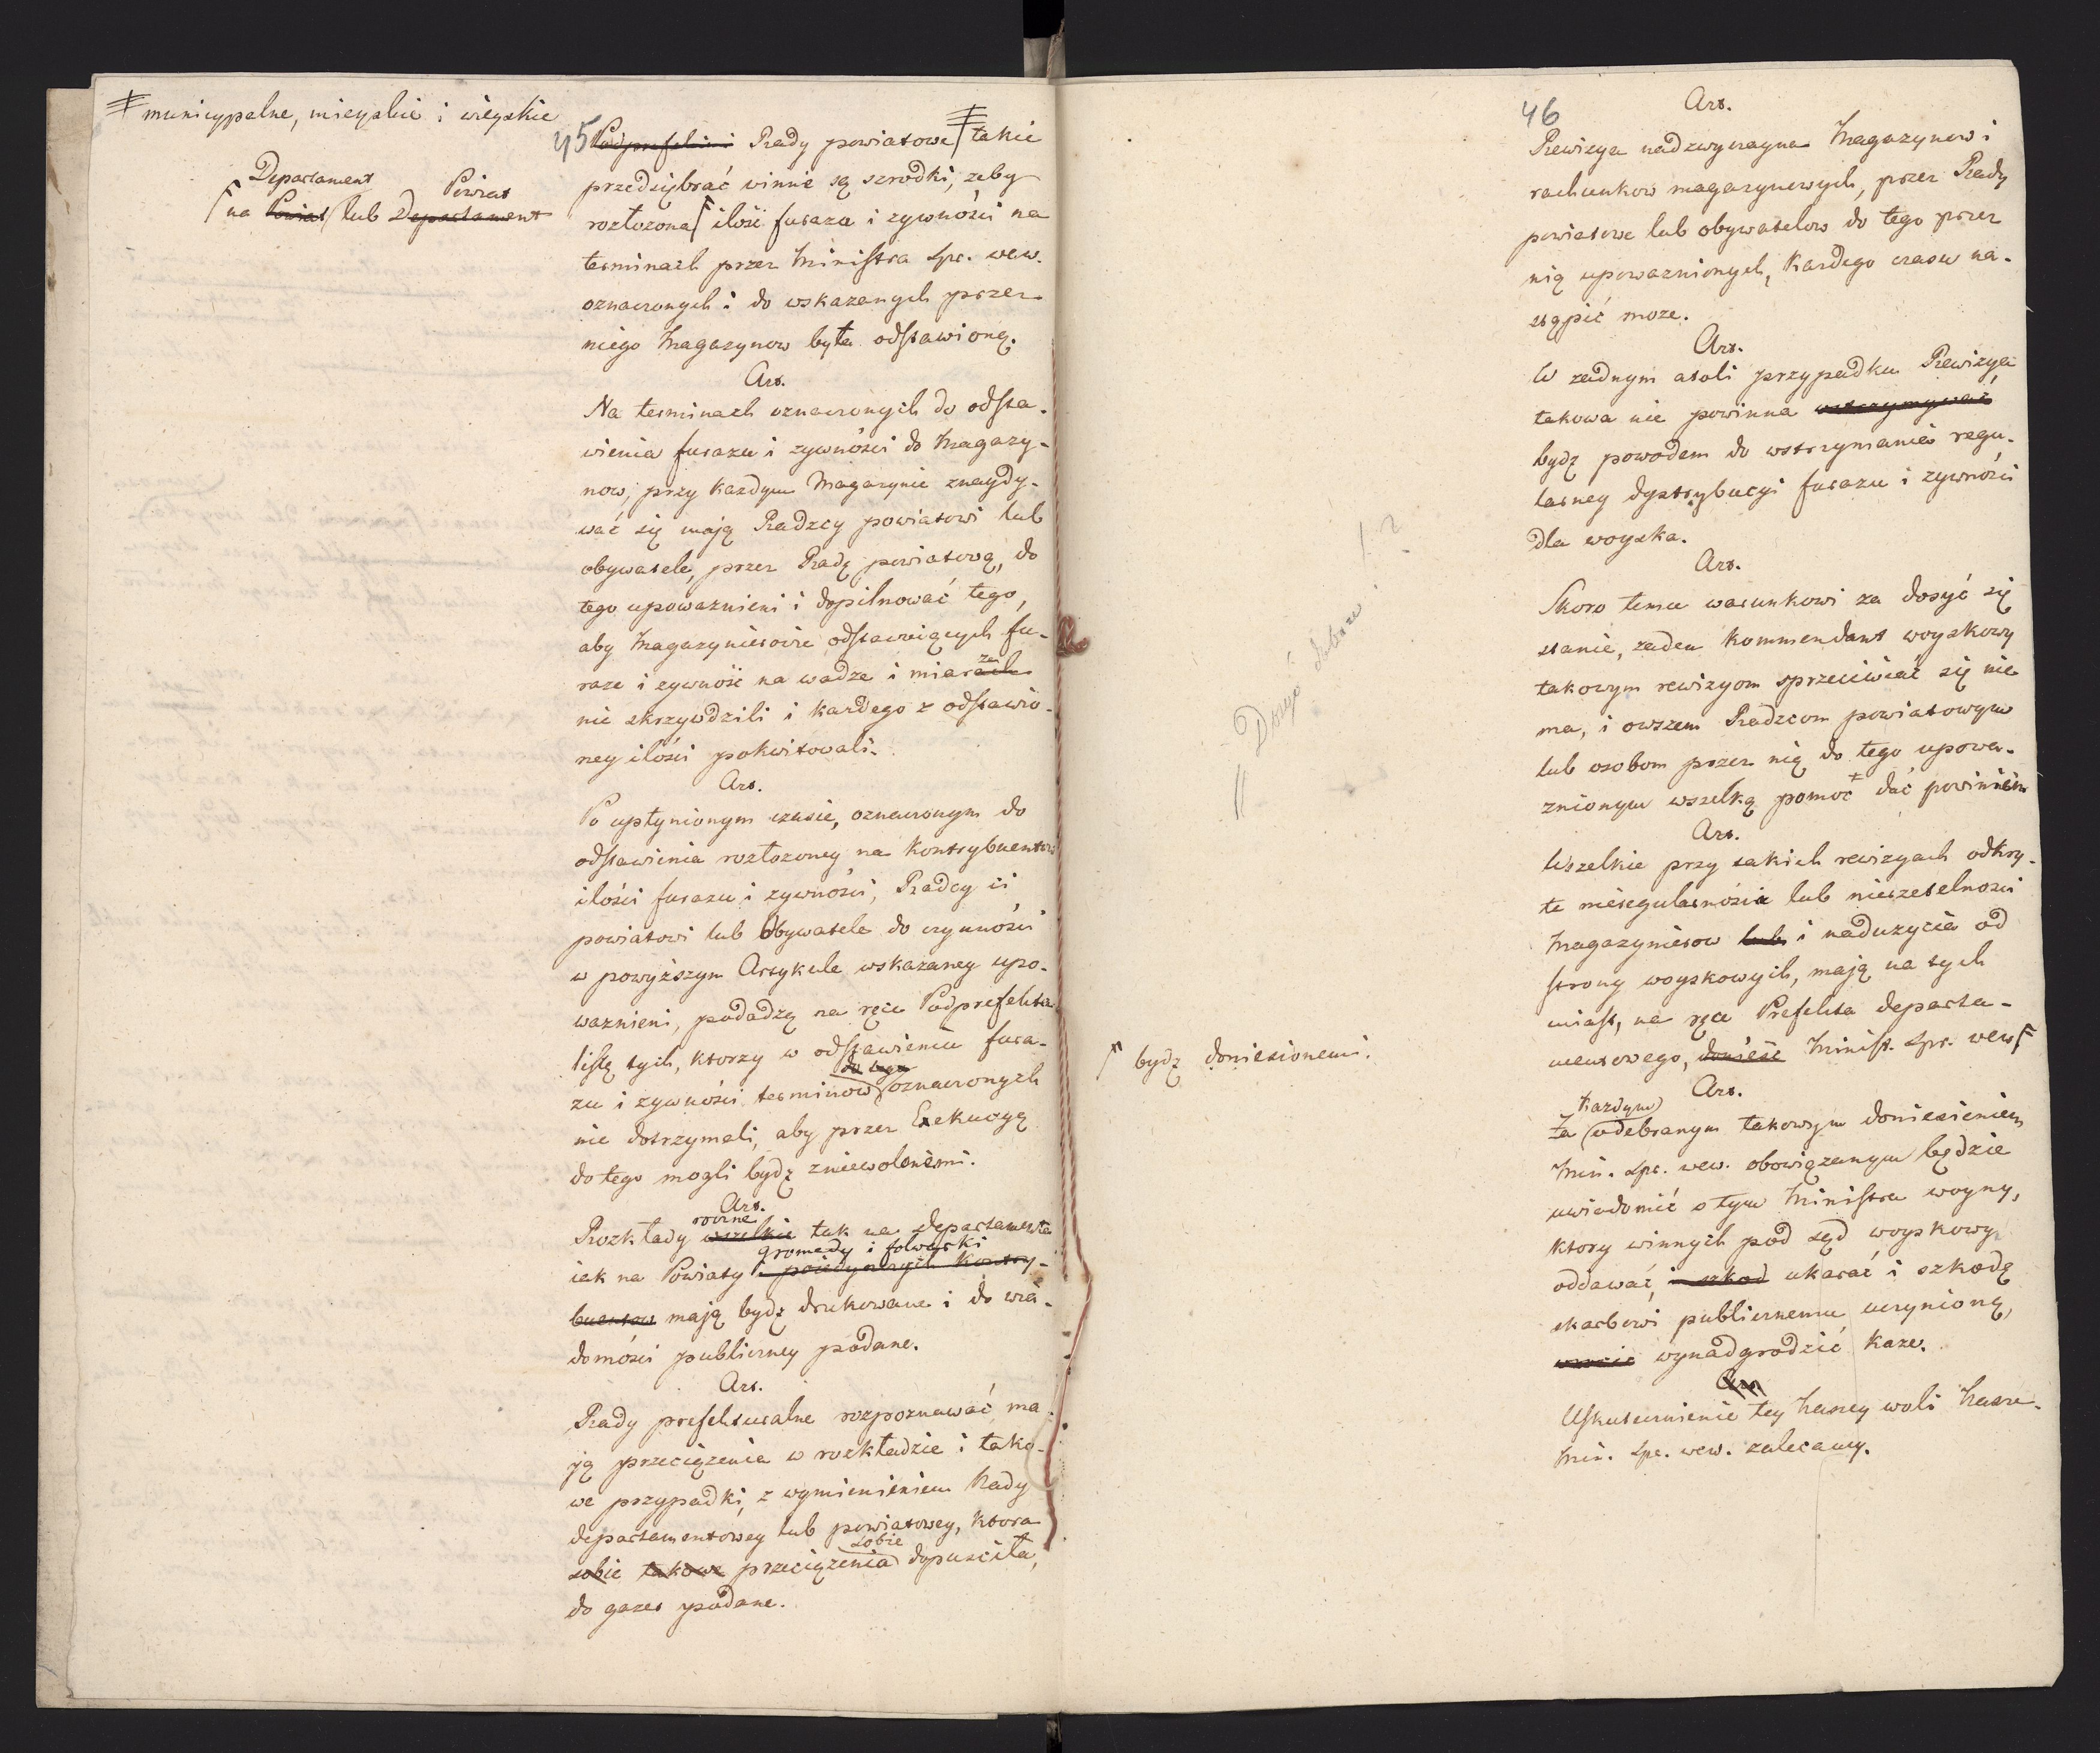 municypalne, mieyskie i wieyskie
Departament Powiat
na Powiat lub Departament
45
Podprefekci i Rady powiatowe takie
przedsiębrać winne są szrodki, zeby
rozłozona ilość furazu i zywności na
terminach przez Ministra Spr. wew.
oznaczonych i do wskazanych przez
niego Magazynow była odstawioną.
Art.
Na terminach oznaczonych do odsta-
wienia furazu i zywności do Magazy-
now, przy kazdym Magazynie znaydy-
wać się mają Radzcy powiatowi lub
obywatele, przez Radę powiatową, do
tego upowaznieni i dopilnować tego,
aby Magazynierowie odstawiących fu-
raze i zywność na wadze i miarach
rze
nie skrzywdzili i kazdego z odstawio-
ney ilości pokwitowali.
Art.
Po upłynionym czasie, oznaczonym do
odstawienia rozłozoney na Kontrybuentow
ilości furazu i zywności, Radcy ii
powiatowi lub Obywatele do czynności
w powyższym Artykule wskazaney upo-
waznieni, podadzą na ręce Podprefekta
listę tych, ktorzy w odstawieniu fura-
do tego
zu i zywności terminow oznaczonych
nie dotrzymali, aby przez Exekucyą
do tego mogli bydź zniewolonemi.
Art.
rowne
Rozkłady wszelkie tak na departamenta
gromady i folwarki
iak na Powiaty i poiedynczych Kontry-
buentow mają bydź drukowane i do wia-
domości publiczney podane.
Art.
Rady prefekturalne rozpoznawać ma-
ją przeciązenia w rozkładzie i tako-
we przypadki, z wymienieniem Rady
departamentowey lub powiatowey, ktora
sobie
sobie takowe przeciązenia dopusciła,
do gazet podane.
Dosyć dobrze
bydź doniesionemi.
46
Art.
Rewizya nadzwyczayna Magazynow i
rachunkow magazynowych, przez Rady
powiatowe lub obywatelow do tego przez
nią upowaznionych, Kazdego czasu na-
stąpić moze.
Art.
W zadnym atoli przypadku Rewizya
takowa nie powinna wstrzymywać
bydź powodem do wstrzymania regu-
larney dystrybucyi furazu i zywności
dla woyska.
Art.
Skoro temu warunkowi za dosyć się
stanie, zaden Kommendant woyskowy
takowym rewizyom sprzeciwiać się nie
ma, i owszem Radzcom powiatowym
lub osobom przez nią do tego upowa-
znionym wszelką pomoc dać powinien
Art.
Wszelkie przy takich rewizyach odkry-
te nieregularności lub nierzetelności
Magazynierow lub i naduzycia od
strony woyskowych, mają na tych
miast, na ręce Prefekta departa-
mentowego, donieść Minist. Spr. wew
Art.
Kazdym
Za odebranym takowym doniesieniem
Min. Spr. wew. obowiązanym będzie
uwiadomić o tym Ministra woyny,
ktory winnych pod sąd woyskowy
oddawać, i szkod ukarać i szkodę
skarbowi publicznemu uczynioną,
wynadgrodzić Kaze.
Art.
Uskutecznienie tey Naszey woli Nasze-
Min. Spr. wew. zalecamy.